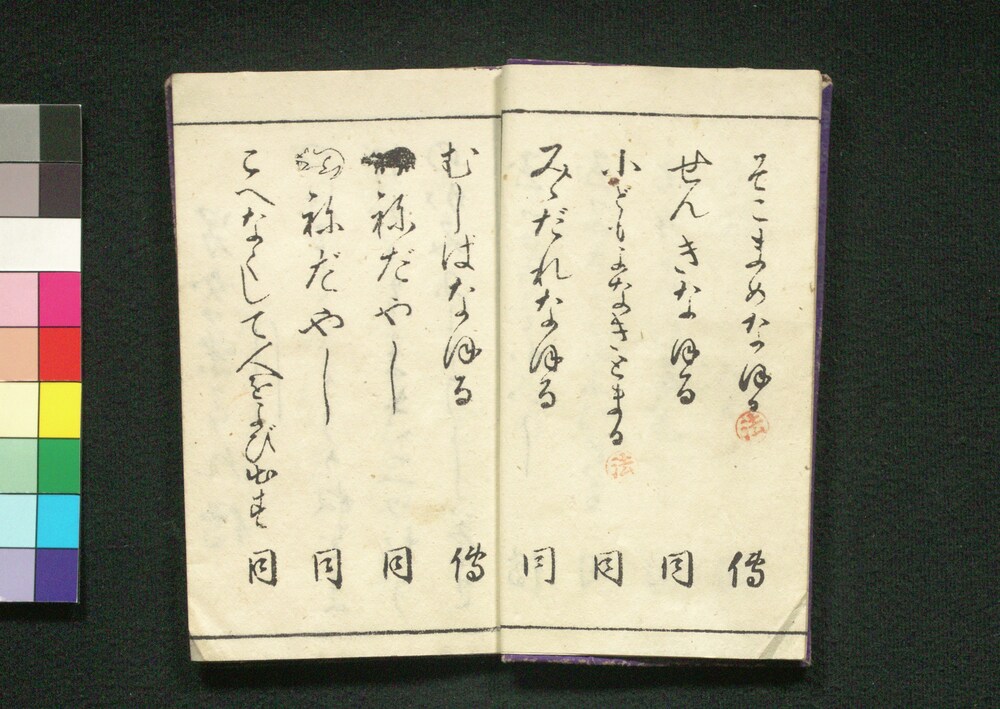 そこまめなほる 法 傳
せんきなほる 同
小どもよなきとまる 法 同
みゝだれなほる 同
むしばなほる 傳
祢だやし 同
祢だやし 同
こへなくして人をよび出す 同